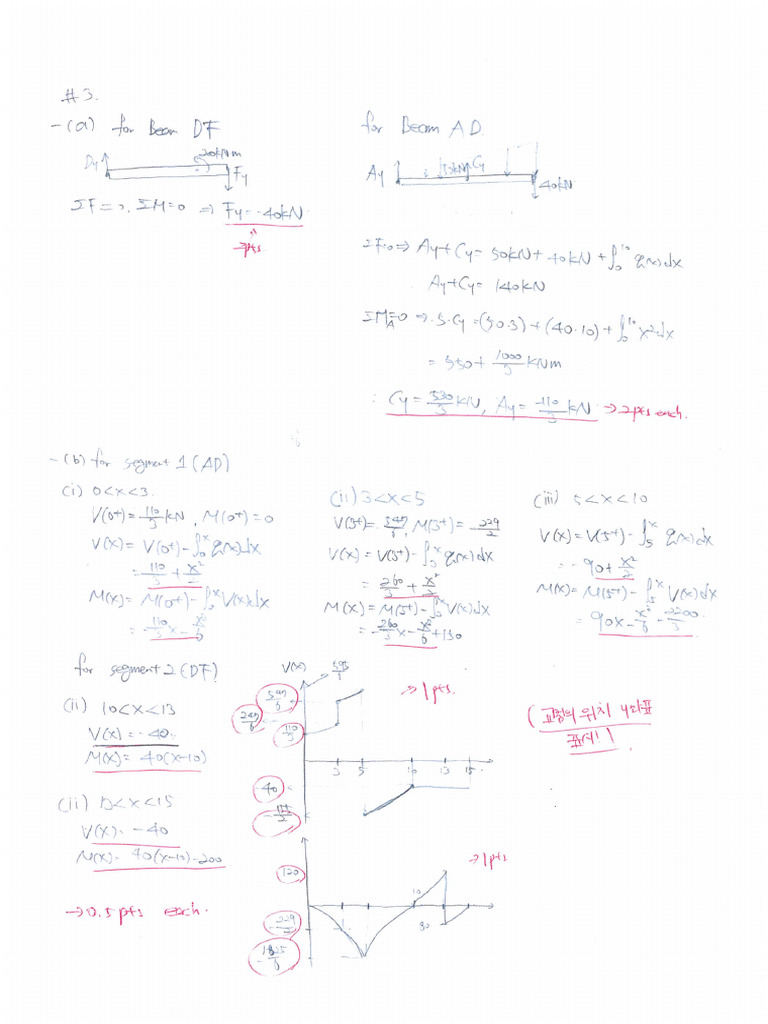 #3.
-(a) for Beam DF
Dy
20kNm
Fy
ΣF=0. ΣM=0 ⇒ Fy=-40kN
for Beam AD.
Ay
Cy
40kN
ΣF=0⇒ Ay+Cy= 50kN+40kN+∫₀¹⁰ q(x)dx
Ay+Cy= 140kN
ΣM_A=0 ⇒ 5·Cy=(50·3)+(40·10)+∫₀¹⁰ x²dx
= 550+ 1000/3 kNm
∴ Cy= 530/3 kN, Ay= -110/3 kN →2pts each.
-(b) for segment 1(AD)
(i) 0<x<3.
V(0+)= 110/3 kN, M(0+)=0
V(x)= V(0+)-∫₀ˣ q(x)dx
= 110/3 + x²/2
M(x)= M(0+)-∫₀ˣ V(x)dx
= -110/3 x - x³/6
(ii) 3<x<5
M(3+)= -229/2
V(x)= V(3+)-∫₃ˣ q(x)dx
= 260/3 + x²/2
M(x)= M(3+)-∫₃ˣ V(x)dx
= -260/3 x - x³/6 +150
(iii) 5<x<10
V(x)= V(5+)-∫₅ˣ q(x)dx
= -90+ x²/2
M(x)= M(5+)-∫₅ˣ V(x)dx
= 90x - x³/6 - 2200/3
for segment 2(DF)
(ii) 10<x<13
V(x)= -40.
M(x)= 40(x-10)
(ii) 13<x<15
V(x)= -40
M(x)= 40(x-10)-200
→0.5pts each.
V(x)
→1pts.
110/3
3 5 10 13 15
-40
120
→1pts
10
80
-229/2